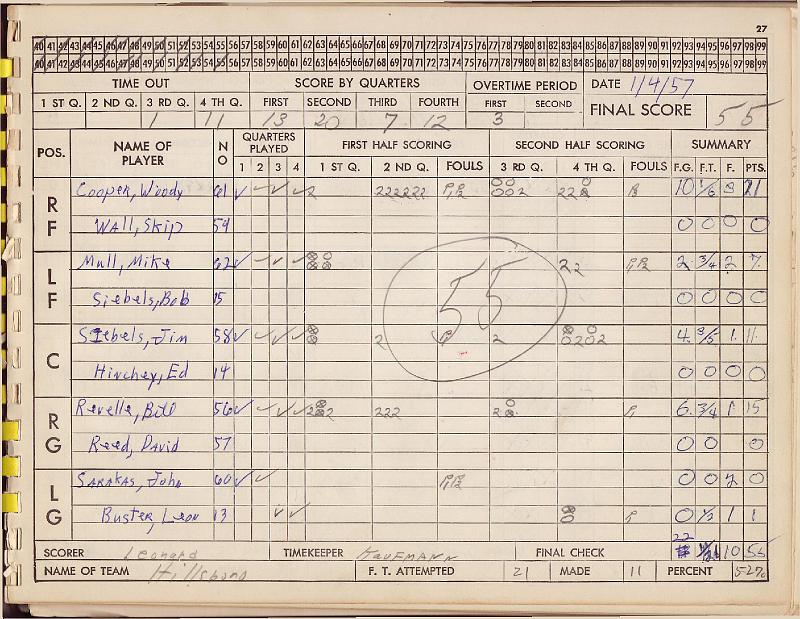 27
40 41 42 43 44 45 46 47 48 49 50 51 52 53 54 55 56 57 58 59 60 61 62 63 64 65 66 67 68 69 70 71 72 73 74 75 76 77 78 79 80 81 82 83 84 85 86 87 88 89 90 91 92 93 94 95 96 97 98 99
40 41 42 43 44 45 46 47 48 49 50 51 52 53 54 55 56 57 58 59 60 61 62 63 64 65 66 67 68 69 70 71 72 73 74 75 76 77 78 79 80 81 82 83 84 85 86 87 88 89 90 91 92 93 94 95 96 97 98 99
TIME OUT SCORE BY QUARTERS OVERTIME PERIOD DATE 1/4/57
1 ST Q. 2 ND Q. 3 RD Q. 4 TH Q. FIRST SECOND THIRD FOURTH FIRST SECOND FINAL SCORE 55
1 11 13 20 7 12 3
POS. NAME OF PLAYER NO QUARTERS PLAYED FIRST HALF SCORING SECOND HALF SCORING SUMMARY
1 2 3 4 1 ST Q. 2 ND Q. FOULS 3 RD Q. 4 TH Q. FOULS F.G. F.T. F. PTS.
RF Cooper, Woody 61 2 222222 P1 P2 002 22 P3 10 1/6 3 21
Wall, Skip 59 0 0 0 0
LF Mull, Mike 62 22 P1 P2 2 3/4 2 7
Siebels, Bob 15 0 0 0 0
55
C Siebels, Jim 58 2 2 0202 4 3/5 1 11
Hinchey, Ed 14 0 0 0 0
RG Revelle, Bill 56 222 P1 6 3/4 1 15
Reed, David 57 0 0 0
LG Sarakas, John 60 P1 P2 0 0 2 0
Buster, Leon 13 P1 0 1/2 1 1
SCORER Leonard TIMEKEEPER Kaufmann FINAL CHECK 22 11/21 10 55
NAME OF TEAM Hillsboro F. T. ATTEMPTED 21 MADE 11 PERCENT 52%